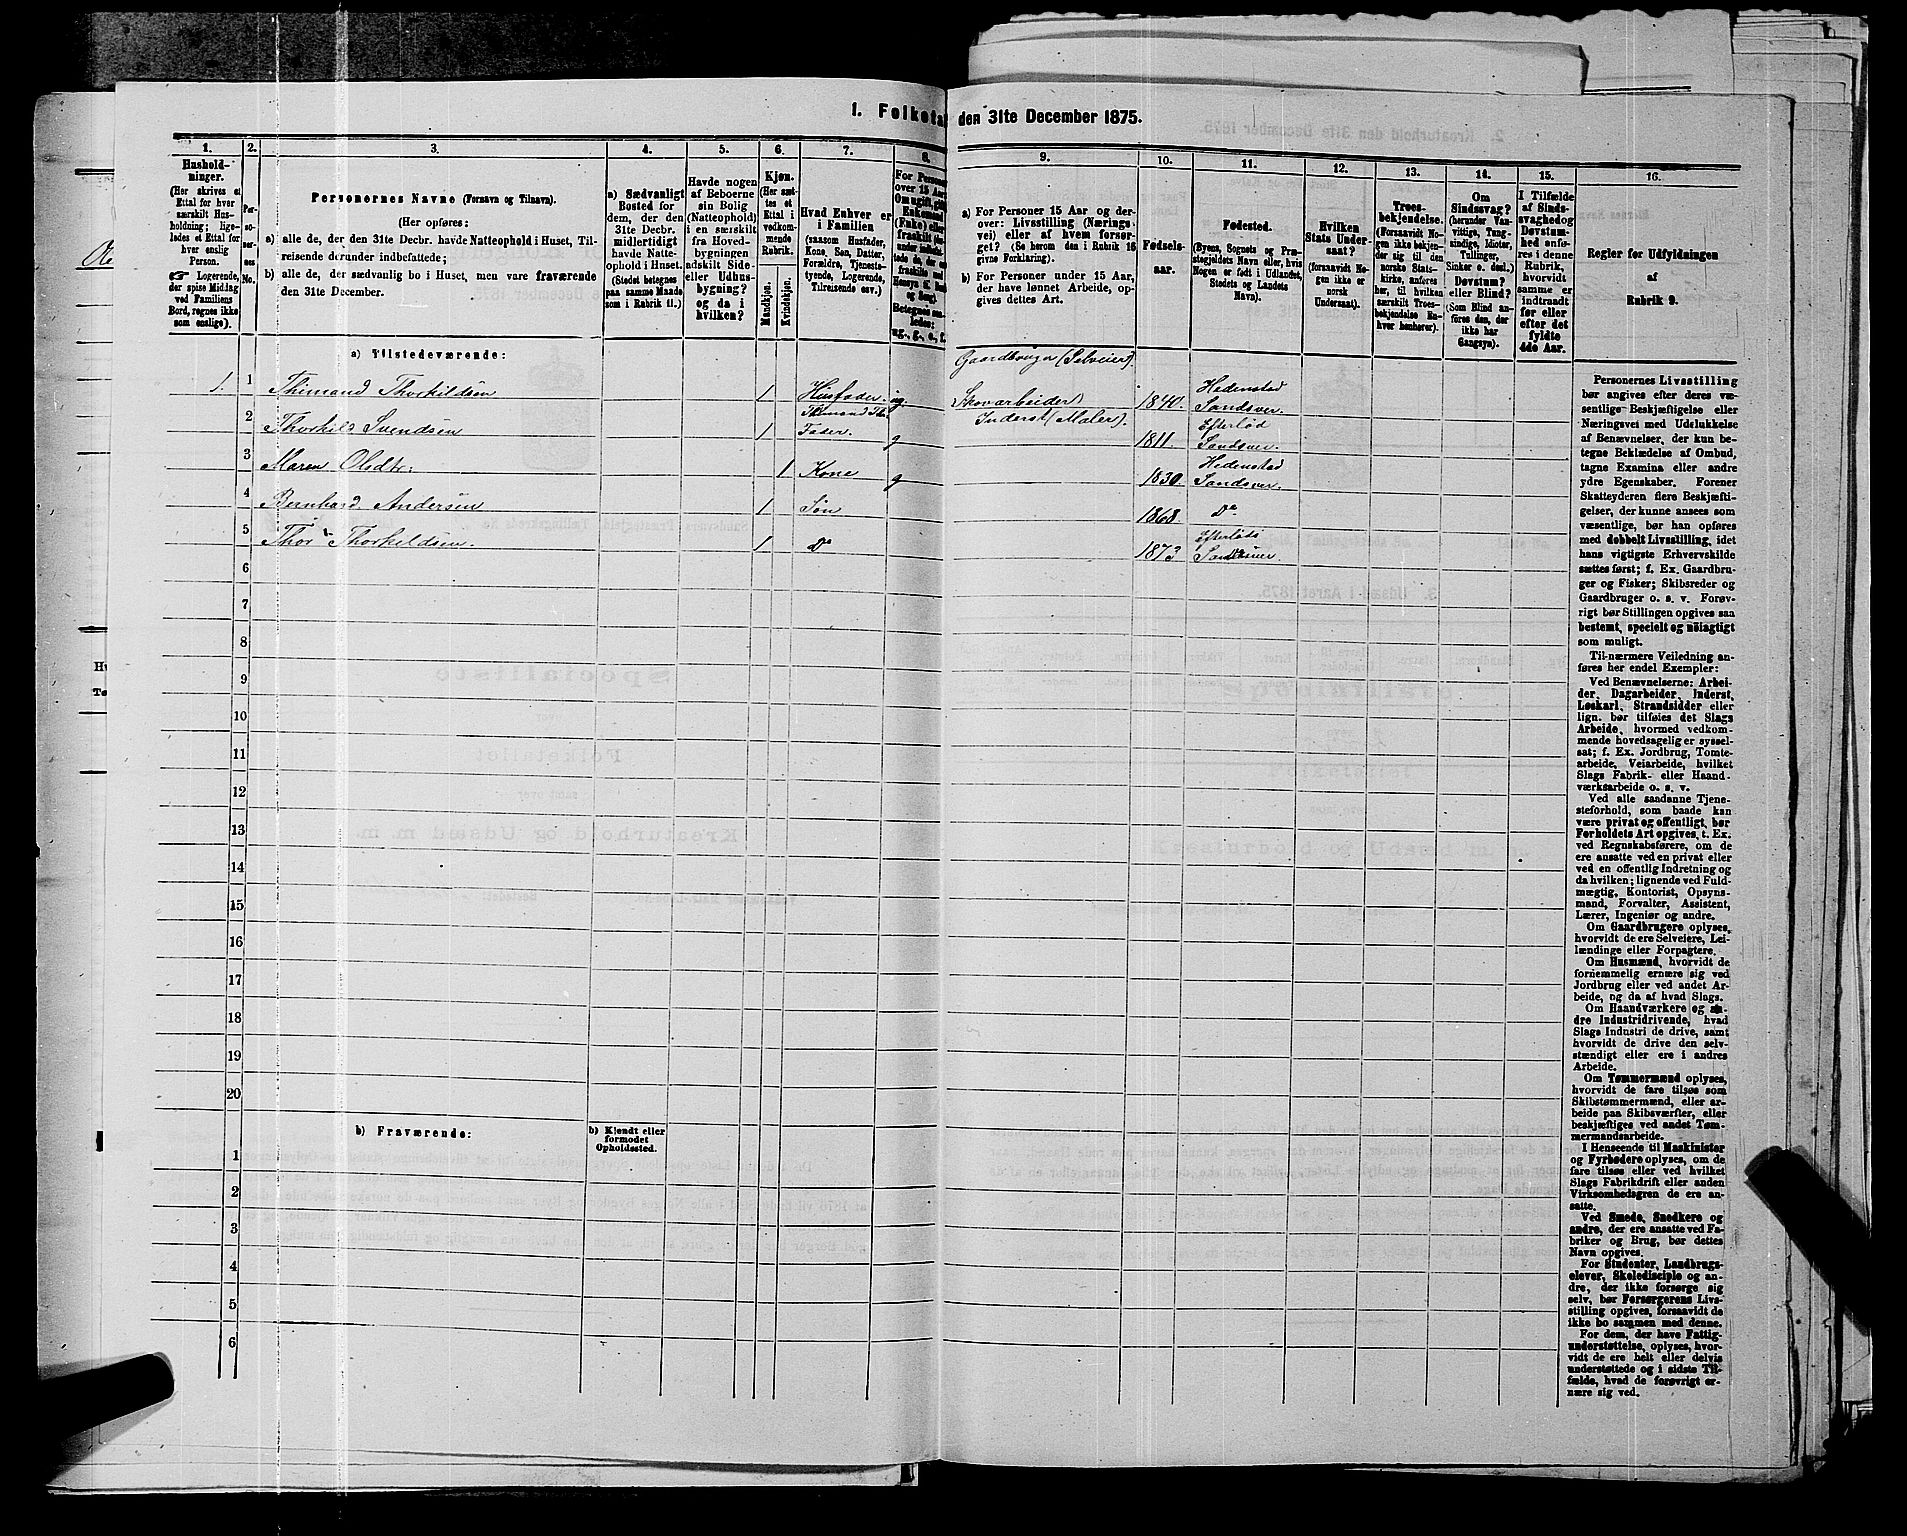 1. Folketal den 31te December 1875.
1. 2. 3. 4. 5. 6. 7. 8. 9. 10. 11. 12. 13. 14. 15. 16.
Hushold-
ninger.
(Her skrives et
Ettal for hver
særskilt Hus-
holdning; lige-
ledes et Ettal for
hver enslig
Person.
☞ Logerende,
der spise Middag
ved Familiens
Bord, regnes ikke
som enslige).
Per-
so-
ner-
nes
No.
Personernes Navne (Fornavn og Tilnavn).
(Her opføres:
a) alle de, der den 31te Decbr. havde Natteophold i Huset, Til-
reisende derunder indbefattede;
b) alle de, der sædvanlig bo i Huset, men vare fraværende
den 31te December.
a) Sædvanligt
Bosted for
dem, der den
31te Decbr.
midlertidigt
havde Natte-
ophold i Huset.
(Stedet betegnes
paa samme Maade
som i Rubrik 11.)
Havde nogen
af Beboerne
sin Bolig
(Natteophold)
i en særskilt
fra Hoved-
bygningen
adskilt Side-
eller Udhus-
bygning?
og da i
hvilken?
Kjøn.
(Her sæt-
tes et
Ettal i
vedkom-
mende
Rubrik.
Mandkjøn.
Kvindekjøn.
Hvad Enhver er
i Familien
(saasom Husfader,
Kone, Søn, Datter,
Forældre, Tjeneste-
tyende, Logerende,
Tilreisende osv.)
For Personer
over 15 Aar
Betegnes saa-
ledes:
ug., g., e., f.
a) For Personer 15 Aar og der-
over: Livsstilling (Nærings-
vei) eller af hvem forsør-
get? (Se herom den i Rubrik 16
givne Forklaring).
b) For Personer under 15 Aar,
der have lønnet Arbeide, op-
gives dettes Art.
Fødsels-
aar.
Fødested.
(Byens, Sognets og Præ-
stegjeldets Navn eller, hvis
Nogen er født i Udlandet,
Stedets og Landets
Navn).
Hvilken
Stats Under-
saat?
(forsaavidt No-
gen ikke er
norsk
Undersaat).
Troes-
bekjendelse.
(Forsaavidt No-
gen ikke bekjen-
der sig til den
norske Stats-
kirke, anføres
her, til hvilken
særskilt Troes-
bekjendelse En-
hver henhører).
Om
Sindssvag?
(herunder Van-
vittige, Tung-
sindige, Idioter,
Tullinger,
Sinker o. desl.)
Døvstum?
eller Blind?
(Som Blind an-
føres den, der
ikke har
Gangsyn).
I Tilfælde
af Sinds-
svaghed og
Døvstum-
hed anfø-
res i denne
Rubrik,
hvorvidt
samme er
indtraadt
før eller
efter det
fyldte
4de Aar.
Regler for Udfyldningen
af
Rubrik 9.
a) Tilstedeværende:
Gaardbruger (Selveier).
1. 1 Thimand Thorkildsen 1 Husfader. ug. Skovarbeider 1840. Hedenstad
Sandsver.
2 Thorkils Svendsen 1 Fader. g Inderst (Maler). 1811. Efterlød
Sandsver.
3 Maren Olsdtr: 1 Kone g 1830. Hedenstad
Sandsver.
4 Bernhard Andersen 1 Søn 1868. Do
5 Thor Thorkildsen. 1 Do 1873 Efterløds
Sandsver.
6
7
8
9
10
11
12
13
14
15
16
17
18
19
20
b) Fraværende:
b) Kjendt eller
formodet
Opholdssted.
1
2
3
4
5
6
Personernes Livsstilling
bør angives efter deres væ-
sentlige Beskjæftigelse eller
Næringsvei med Udelukkelse
af Benævnelser, der kun be-
tegne Beklædelse af Ombud,
tagne Examina eller andre
ydre Egenskaber. Forener
Skatteyderen flere Beskjæfti-
gelser, der kunne ansees som
væsentlige, bør han opføres
med dobbelt Livsstilling, idet
hans vigtigste Erhvervskilde
sættes først; f. Ex. Gaardbru-
ger og Fisker; Skibsreder og
Gaardbruger o. s. v. Forøv-
rigt bør Stillingen opgives saa
bestemt, specielt og nöiagtigt
som muligt.
Til nærmere Veiledning an-
føres her endel Exempler:
Ved Benævnelserne: Arbei-
der, Dagarbeider, Inderst,
Løskarl, Strandsidder eller
lign. bør tilføies det Slags
Arbeide, hvormed vedkom-
mende hovedsagelig er syssel-
sat; f. Ex. Jordbrug, Tomte-
arbeide, Veiarbeide, hvilket
Slags Fabrik- eller Haand-
værksarbeide o. s. v.
Ved alle saadanne Tjene-
steforhold, som baade kan
være privat og offentligt, bør
Forholdets Art opgives, t. Ex.
ved Regnskabsførere, om de
ere ansatte ved en privat eller
ved en offentlig Indretning og
da hvilken; lignende ved Fuld-
mægtig, Kontorist, Opsyns-
mand, Forvalter, Assistent,
Lærer, Ingeniør og andre.
Om Gaardbrugere oplyses,
hvorvidt de ere Selveiere, Lei-
lændinge eller Forpagtere.
Om Husmænd, hvorvidt de
fornemmelig ernære sig ved
Jordbrug eller ved andet Ar-
beide, og da af hvad Slags.
Om Haandværkere og an-
dre Industridrivende, hvad
Slags Industri de drive, samt
hvorvidt de drive den selv-
stændigt eller ere i andres
Arbeide.
Om Tømmermænd oplyses,
hvorvidt de fare tilsøs som
Skibstømmermænd, eller ar-
beide paa Skibsværfter, eller
beskjæftiges ved andet Tøm-
mermandsarbeide.
I Henseende til Maskinister
og Fyrbødere oplyses, om de
fare tilsøs eller ved hvilket
Slags Fabrikdrift eller anden
Virksomhedsgren de ere an-
satte.
Ved Smede, Snedkere og
andre, der ere ansatte ved Fa-
briker og Brug, bør dettes
Navn opgives.
For Studenter, Landbrugs-
elever, Skoledisciple og an-
dre, der ikke forsørge sig
selv, bør Forsørgerens Livs-
stilling opgives, forsaavidt de
ikke bo sammen med denne.
For dem, der have Fattig-
understøttelse, oplyses, hvor-
vidt de ere helt eller delvis
understøttede og i sidste Til-
fælde, hvad de forøvrigt er-
nære sig ved.